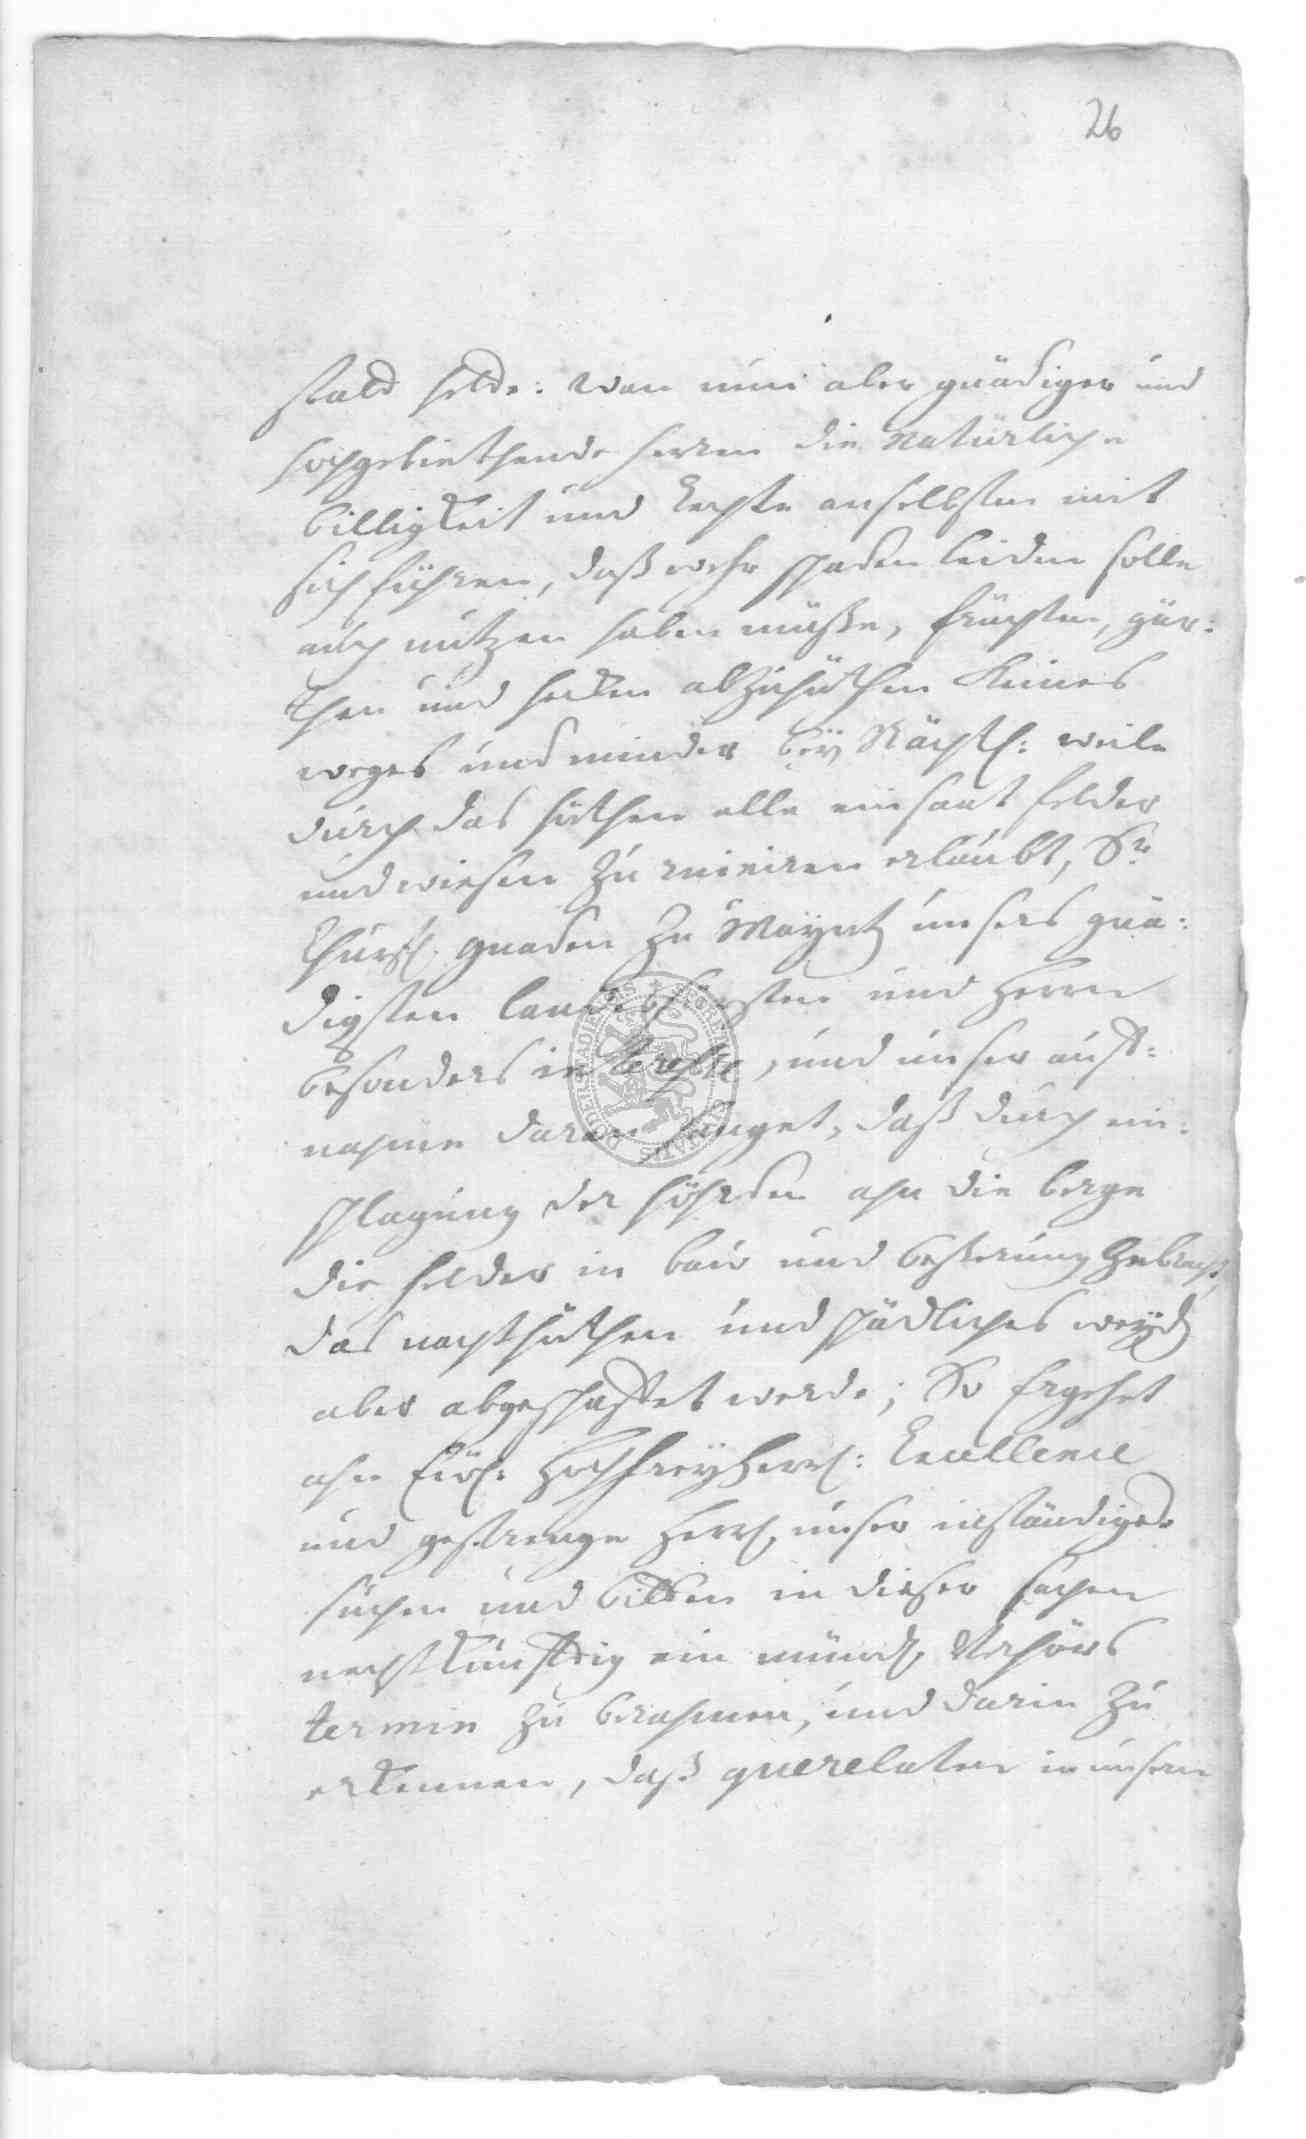 26
stald solde: wan nun aber gnädiger und
hochgebiethende herren die Natürliche
billigkeit und rechte anselbsten mit
sich führen, daß wehr schaden leiden solle
auch nutzen haben müße, früchten, gär:
then und hecken abzuhüthen keines
weges und minder beÿ Nächtl: weile
durch das hüthen alle einsaat felder
und wiesen zu ruiniren erlaubt, Sr
Churfl. gnaden zu Mayntz unsers gnä:
digsten landtsfürsten und Herren
besonders interesse, und unser auff:
nahme daran hanget, daß durch ein:
schlagung der hührden ahn die berge
die felder in bau und beßerung gebracht,
das nachthüthen und schädliches weyd
aber abgeschaffet werde; So Ergehet
ahn Ewl: HochfreyHerrl: Excellence
und gestrenge Herrl. unser inständiges
suchen und bitten in dieser sachen
nechstkünfftig ein mündl. Verhörs
termin zu berahmen, und darin zu
erkennen, daß querelaten in unsern